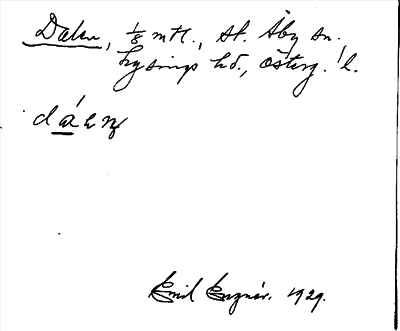 Dalen, 1/8 mtl., St. Åby sn.
Lysings hd., Österg. l.
Emil Engnér. 1929.